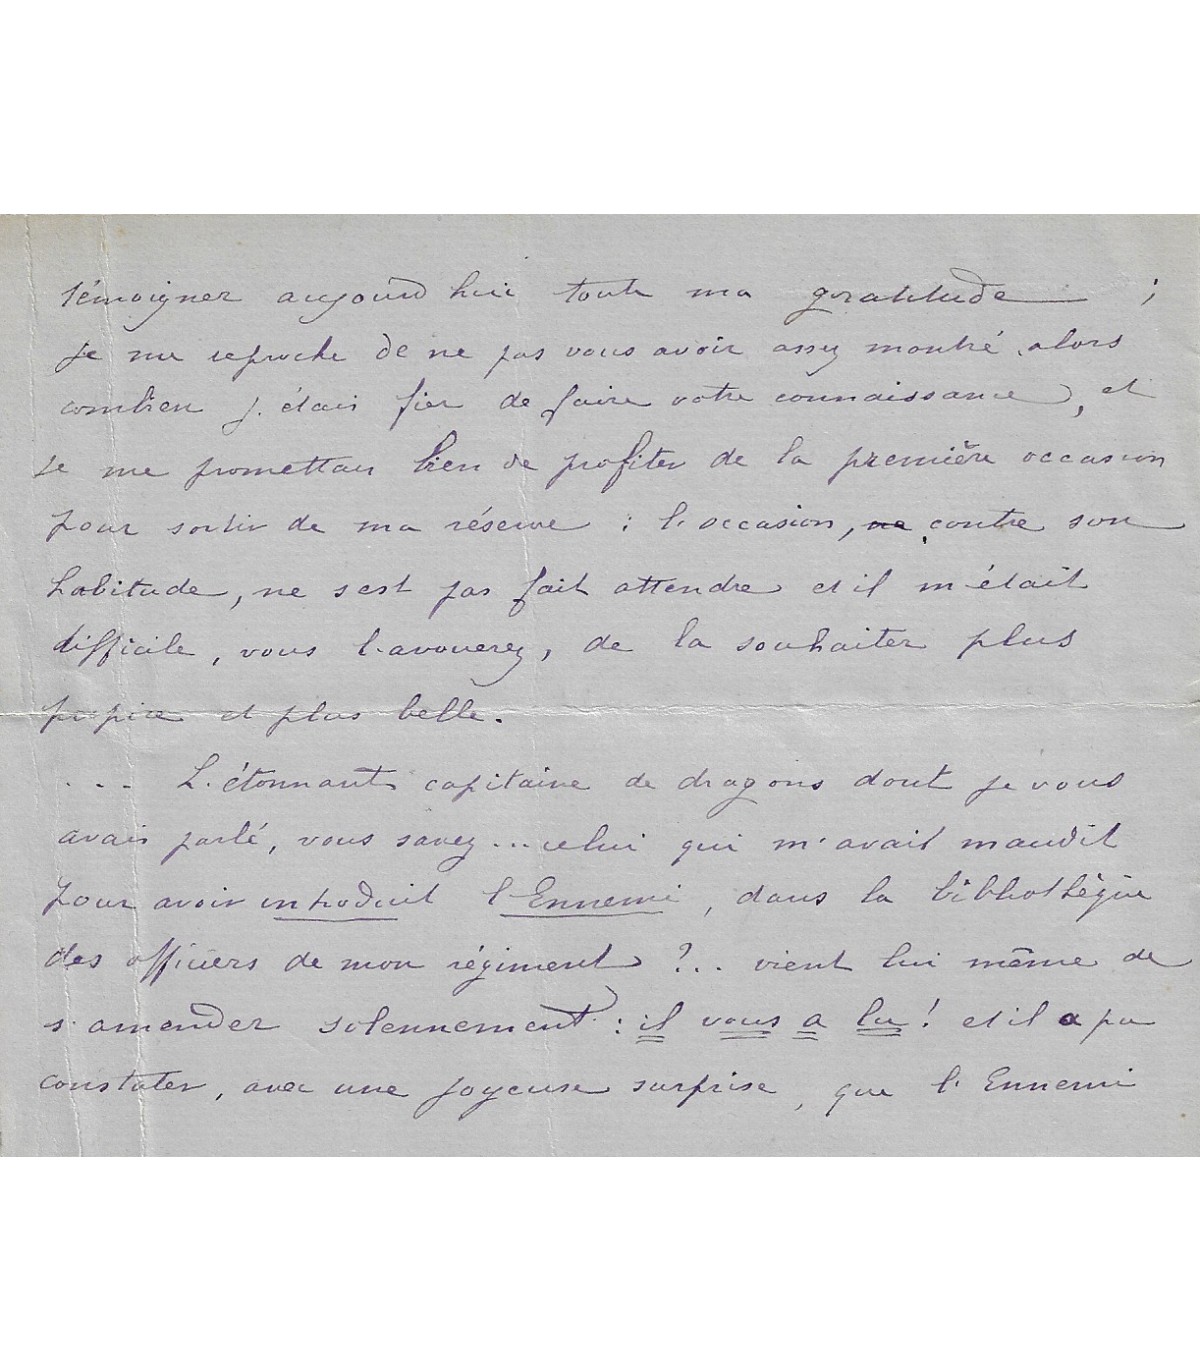 témoigner aujourd'hui toute ma gratitude ;
je me reproche de ne pas vous avoir assez montré alors
combien j'étais fier de faire votre connaissance, et
je me promettais bien de profiter de la première occasion
pour sortir de ma réserve : l'occasion, ne contre son
habitude, ne s'est pas fait attendre et il m'était
difficile, vous l'avouerez, de la souhaiter plus
propice et plus belle.
... L'étonnant capitaine de dragons dont je vous
avais parlé, vous savez... celui qui m'avait maudit
pour avoir introduit l'Ennemi, dans la bibliothèque
des officiers de mon régiment ?... vient lui même de
s'amender solennement : il vous a lu ! et il a pu
constater, avec une joyeuse surprise, que l'Ennemi